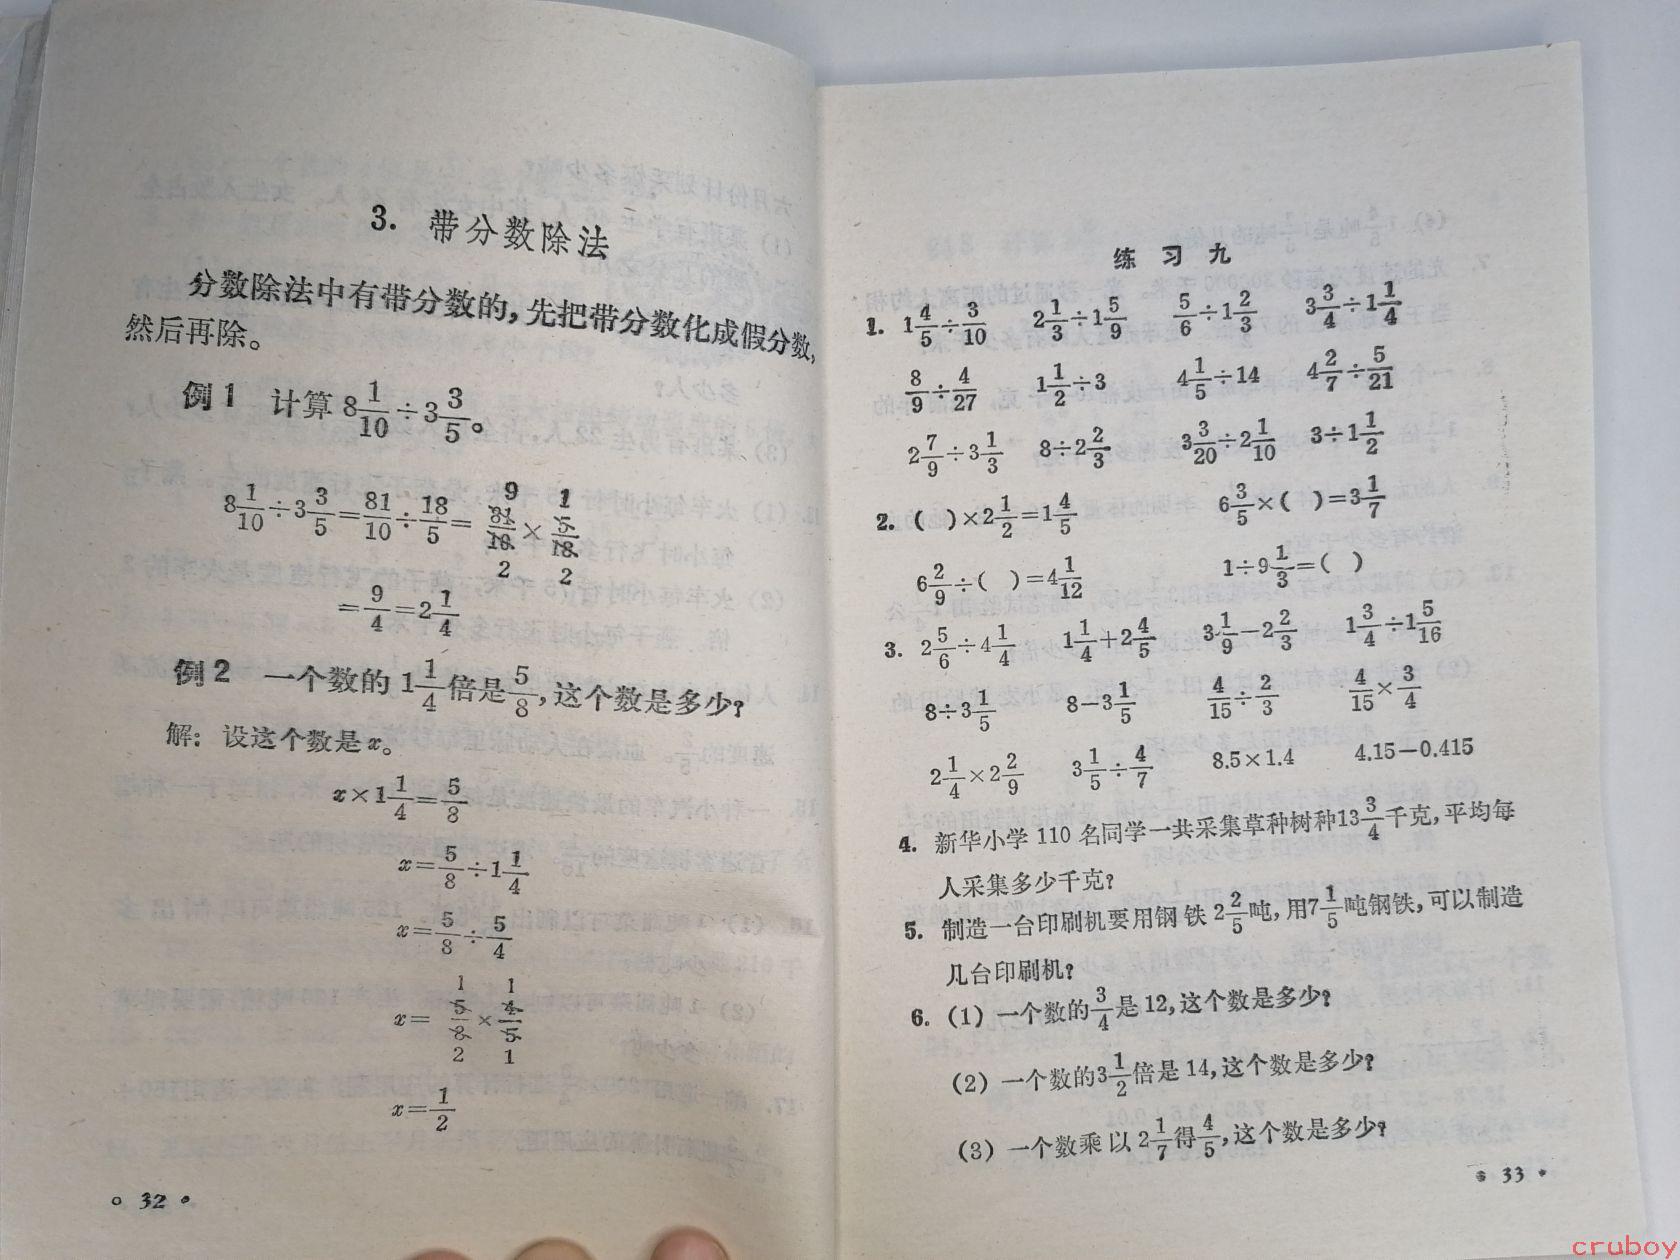 3. 带分数除法
分数除法中有带分数的,先把带分数化成假分数,
然后再除。
例1 计算 8 1/10 ÷ 3 3/5。
8 1/10 ÷ 3 3/5 = 81/10 ÷ 18/5 = 81/10 × 5/18
9 1
2 2
= 9/4 = 2 1/4
例2 一个数的 1 1/4 倍是 5/8,这个数是多少?
解: 设这个数是 x。
x × 1 1/4 = 5/8
x = 5/8 ÷ 1 1/4
x = 5/8 ÷ 5/4
1 1
x = 5/8 × 4/5
2 1
x = 1/2
32
练习九
1. 1 4/5 ÷ 3/10 2 1/3 ÷ 1 5/9 5/6 ÷ 1 2/3 3 3/4 ÷ 1 1/4
8/9 ÷ 4/27 1 1/2 ÷ 3 4 1/5 ÷ 14 4 2/7 ÷ 5/21
2 7/9 ÷ 3 1/3 8 ÷ 2 2/3 3 3/20 ÷ 2 1/10 3 ÷ 1 1/2
2. ( ) × 2 1/2 = 1 4/5 6 3/5 × ( ) = 3 1/7
6 2/9 ÷ ( ) = 4 1/12 1 ÷ 9 1/3 = ( )
3. 2 5/6 ÷ 4 1/4 1 1/4 + 2 4/5 3 1/9 − 2 2/3 1 3/4 ÷ 1 5/16
8 ÷ 3 1/5 8 − 3 1/5 4/15 ÷ 2/3 4/15 × 3/4
2 1/4 × 2 2/9 3 1/5 ÷ 4/7 8.5 × 1.4 4.15 − 0.415
4. 新华小学 110 名同学一共采集草种树种13 3/4 千克,平均每
人采集多少千克?
5. 制造一台印刷机要用钢铁 2 2/5 吨,用7 1/5 吨钢铁,可以制造
几台印刷机?
6. (1) 一个数的 3/4 是 12,这个数是多少?
(2) 一个数的3 1/2 倍是 14,这个数是多少?
(3) 一个数乘以 2 1/7 得 4/5,这个数是多少?
33
cruboy